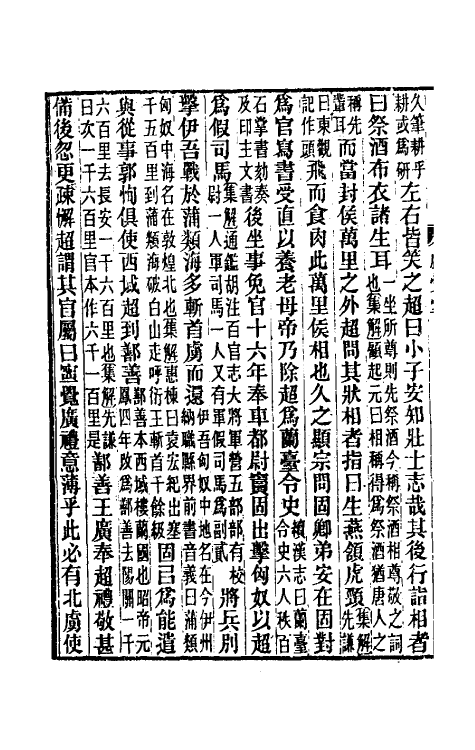 久筆耕乎
耕或爲研
左右皆笑之超曰小子安知壯士志哉其後行詣相者
曰祭酒布衣諸生耳
一坐所尊則先祭酒今稱祭酒相尊敬之詞
也集解顧起元曰相稱得爲祭酒猶唐人之
稱先
輩耳
而當封侯萬里之外超問其狀相者指曰生燕頷虎頸
集解
先謙
曰東觀
記作頭
飛而食肉此萬里侯相也久之顯宗問固卿弟安在固對
爲官寫書受直以養老母帝乃除超爲蘭臺令史
續漢志曰蘭臺
令史六人秩百
石掌書劾奏
及印主文書
後坐事免官十六年奉車都尉竇固出擊匈奴以超
爲假司馬
集解通鑑胡注百官志大將軍營五部部有校
尉一人軍司馬一人又有軍假司馬爲副貳
將兵別
擊伊吾戰於蒲類海多斬首虜而還
伊吾匈奴中地名在今伊州
納職縣界前書音義曰蒲類
匈奴中海名在敦煌北也集解惠棟曰袁宏紀出塞
千五百里到蒲類海破白山走呼衍王斬首千餘級
固㠯爲能遣
與從事郭恂俱使西域超到鄯善
鄯善本西域樓蘭國也昭帝元
鳳四年改爲鄯善去陽關一千
六百里去長安一千六百里也集解先謙
曰次一千六百里官本作六千一百里是
鄯善王廣奉超禮敬甚
備後忽更疎懈超謂其官屬曰寍覺廣禮意薄乎此必有北虜使